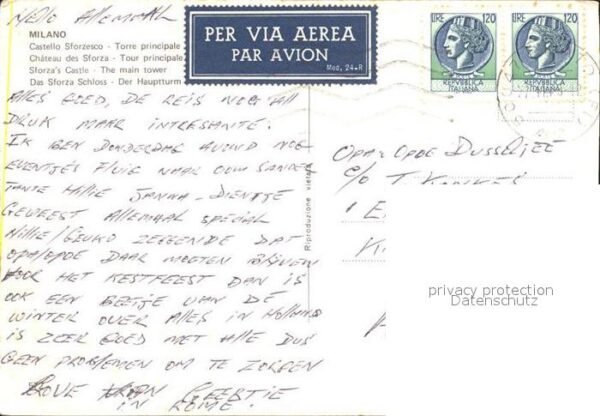 Hello Allemaal
MILANO
Castello Sforzesco - Torre principale
Château des Sforza - Tour principale
Sforza's Castle - The main tower
Das Sforza Schloss - Der Hauptturm
PER VIA AEREA
PAR AVION
Mod. 24-R
LIRE 120
REPVBBLICA
ITALIANA
LIRE 120
REPVBBLICA
ITALIANA
ALLES GOED, DE REIS NOGAL
DRUK MAAR INTRESANTE.
IK BEN DONDERDAG AVOND NOG
EVENTJES NAAR OOM SANDER
TANTE HILLIE JANNA - DIENTJE
GEWEEST ALLEMAAL SPECIAL
ZEGGENDE DAT
OPA/OPOE DAAR MOETEN BLIJVEN
VOOR HET KESTFEEST DAN IS
OOK EEN BEETJE VAN DE
WINTER OVER ALLES IN HOLLAND
IS ZEER GOED MET HILLIE DUS
GEEN PROBLEMEN OM TE ZORGEN
LOVE GEERTJE
IN ROME.
Riproduzione vietata
OPA OPOE DUSSELJEE
c/o T.
privacy protection
Datenschutz